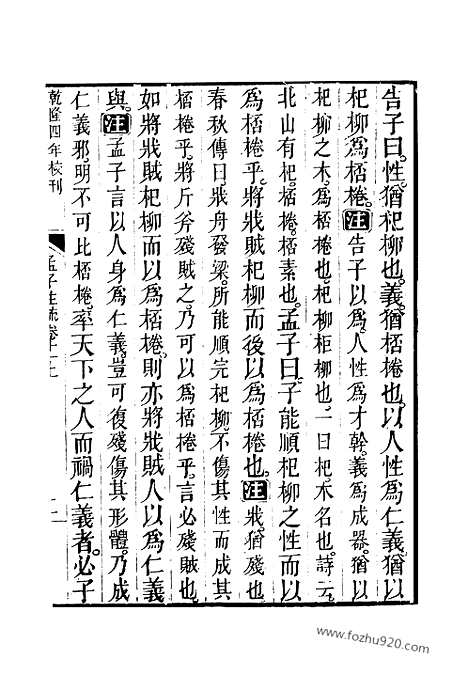 告子曰。性。猶杞柳也。義。猶桮棬也。以人性爲仁義。猶以
杞柳爲桮棬。注告子以爲人性爲才幹。義爲成器。猶以
杞柳之木。爲桮棬也。杞柳柜柳也。一曰杞。木名也。詩云
北山有杞。桮棬。桮素也。孟子曰。子能順杞柳之性而以
爲桮棬乎。將戕賊杞柳而後以爲桮棬也。注戕。猶殘也
春秋傳曰。戕舟發梁。所能順完杞柳。不傷其性而成其
桮棬乎。將斤斧殘賊之。乃可以爲桮棬乎。言必殘賊也。
如將戕賊杞柳而以爲桮棬。則亦將戕賊人以爲仁義
與。注孟子言以人身爲仁義。豈可復殘傷其形體。乃成
仁義邪。明不可比桮棬。率天下之人而禍仁義者。必子
乾隆四年校刊
孟子注疏卷十一上
www.fozhu920.com